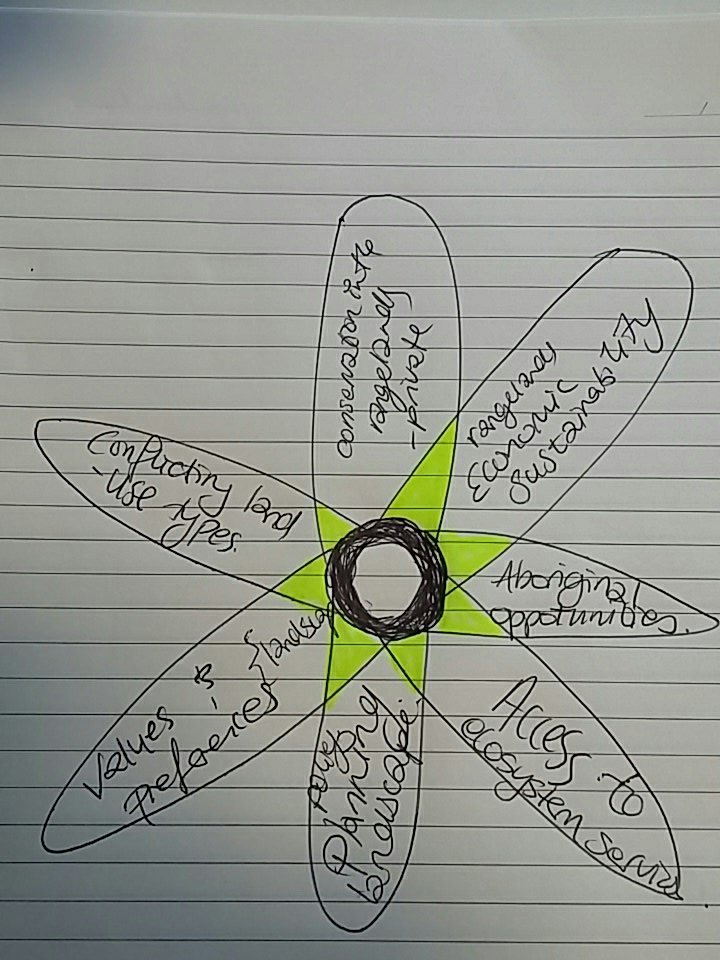 conservation in the
rangelands
- private
rangelands
Economic
Sustainability
Aboriginal
oppotunities.
Access to
ecosystem service
Planning
landscape.
Values &
preferences
Conflicting land
- use types.